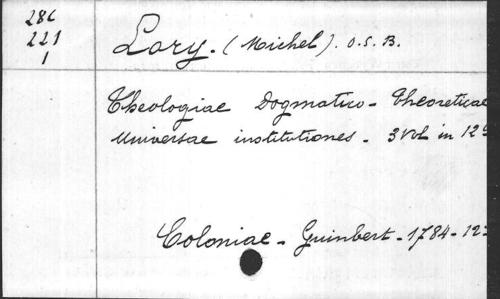 286
221
1
Lory. (Michel). O.S.B.
Theologiae Dogmatico-Theoreticae
Universae institutiones. 3 Vol in 12º
Coloniae - Guinbert - 1784-12-